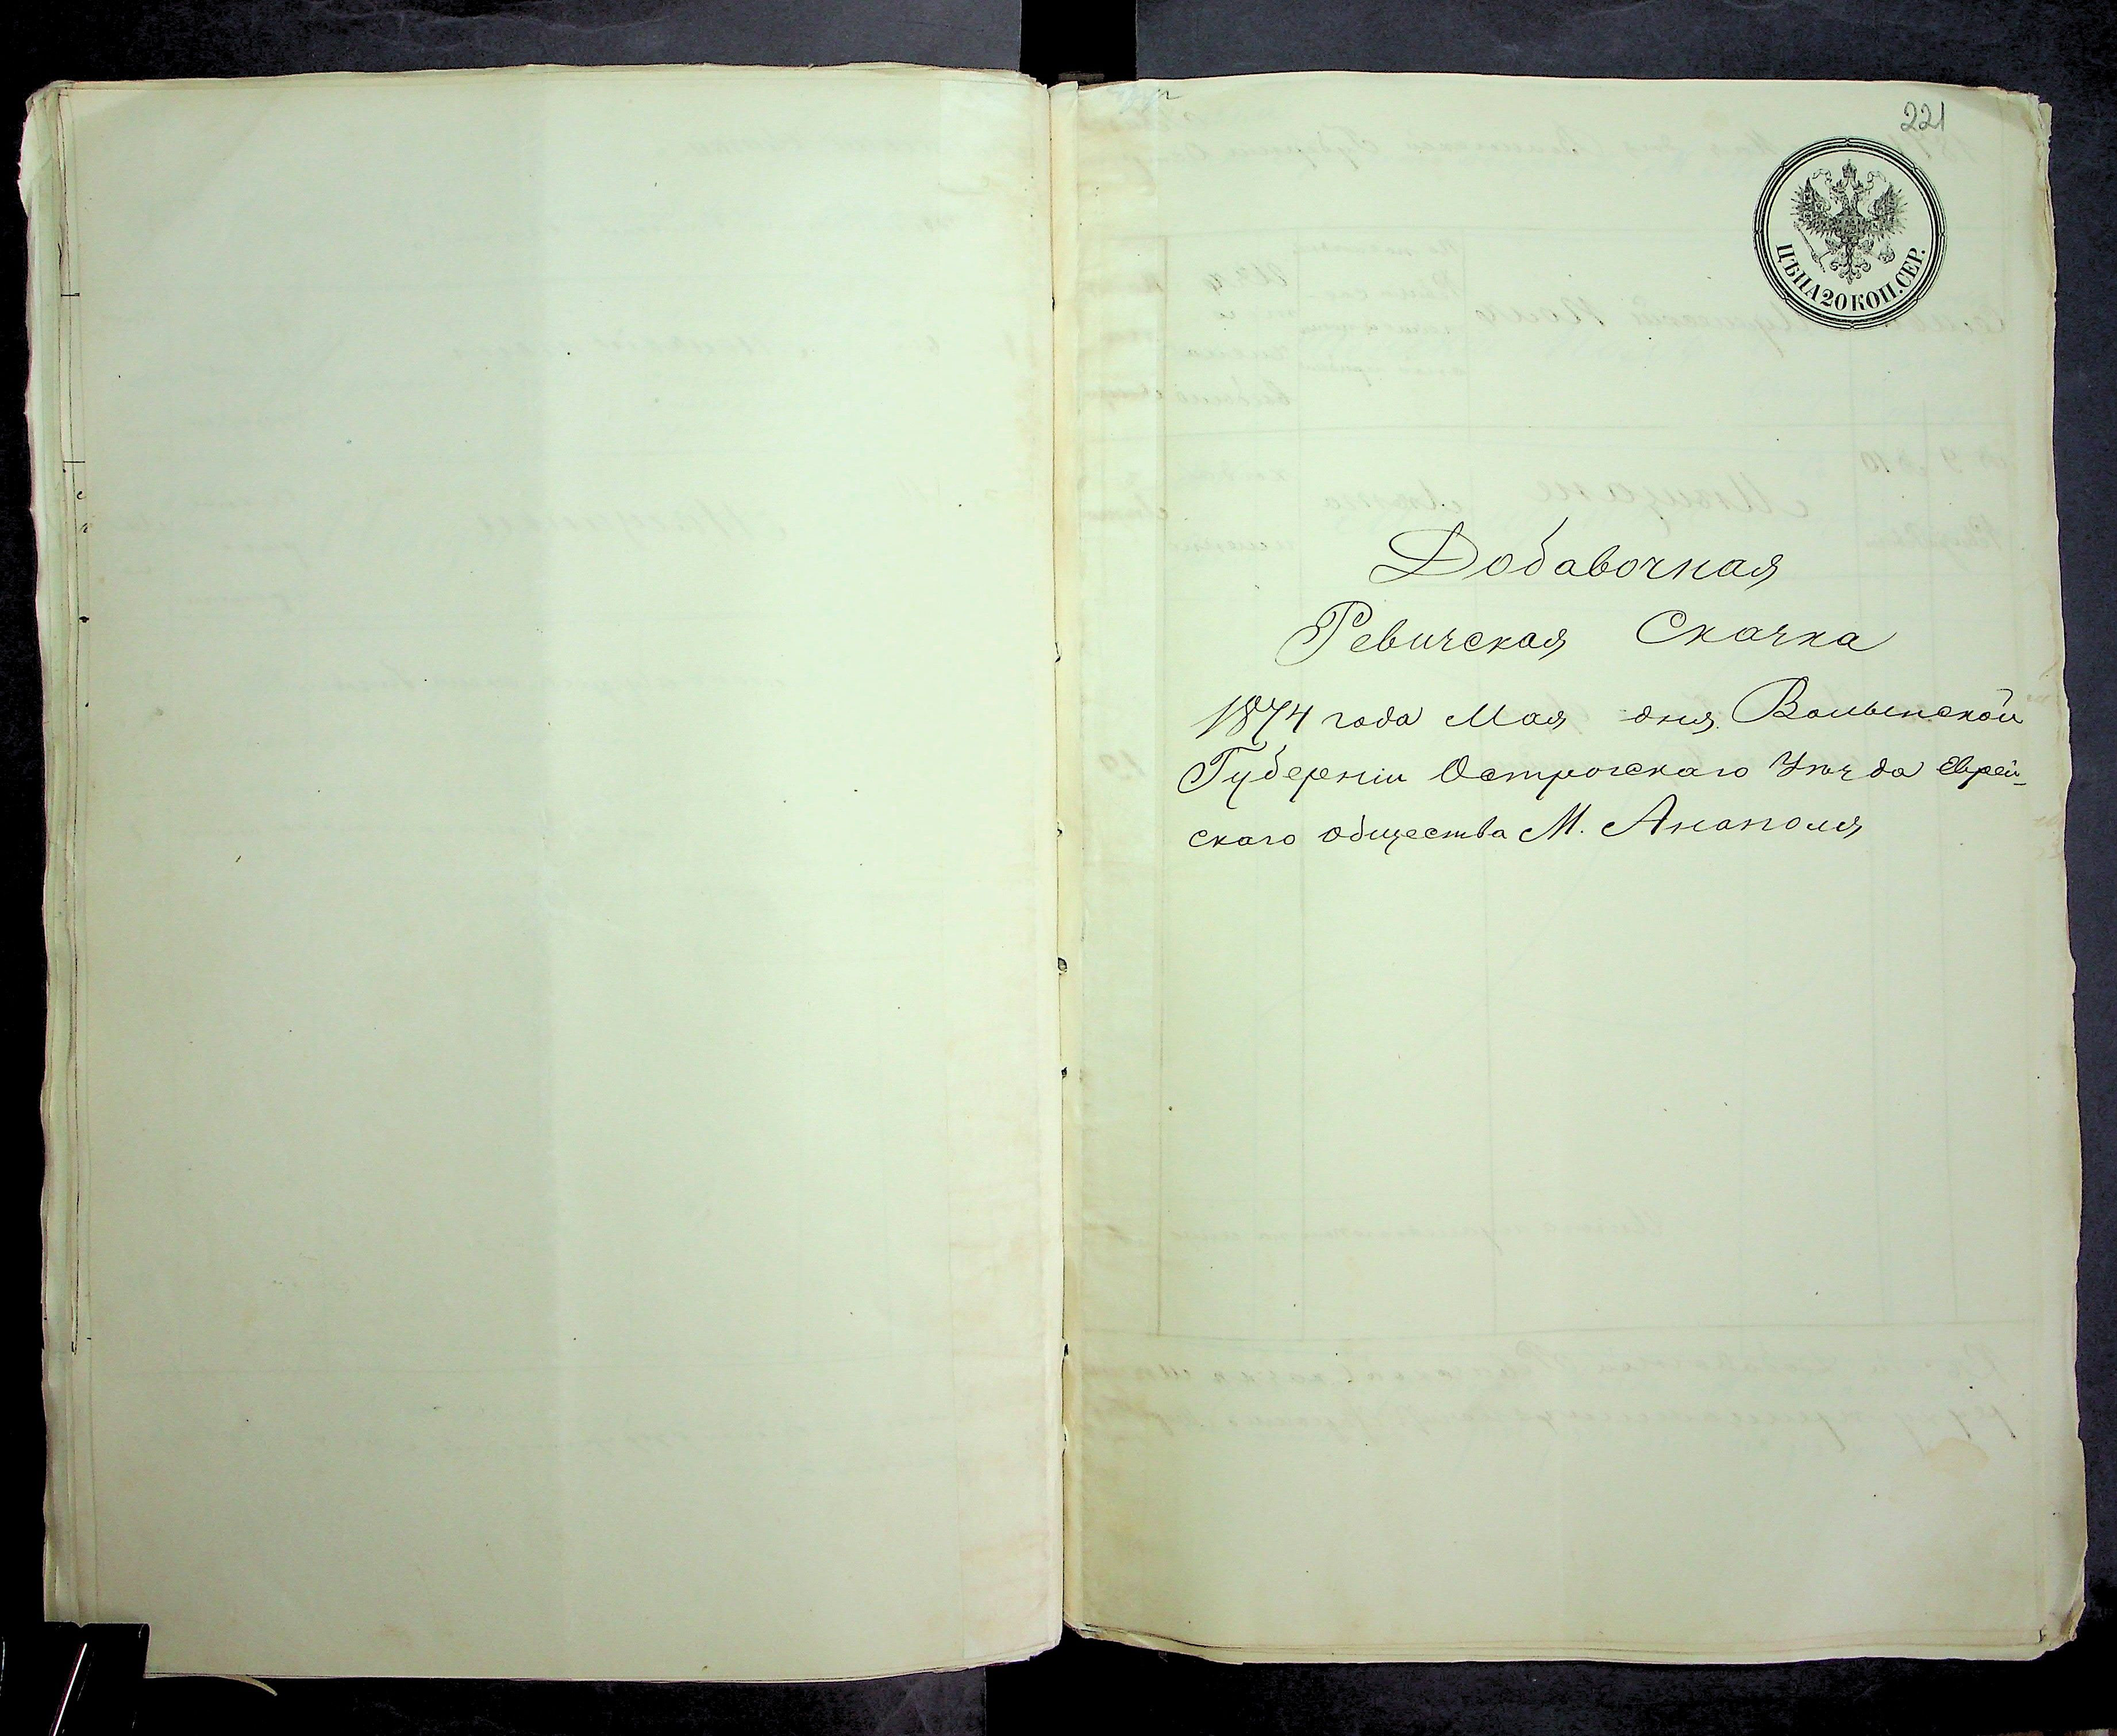 221
ЦѢНА 20 КОП. СЕР.
Добавочная
Ревизская Сказка
1874 года Мая дня Волынской
Губерніи Острогскаго Уѣзда Еврей-
скаго общества М. Анаполя